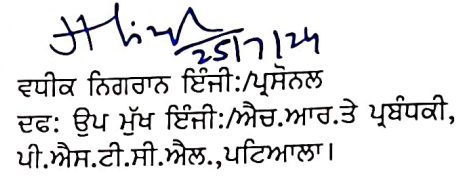 25/7/24
ਵਧੀਕ ਨਿਗਰਾਨ ਇੰਜੀ:/ਪ੍ਰਸੋਨਲ
ਦਫ: ਉਪ ਮੁੱਖ ਇੰਜੀ:/ਐਚ.ਆਰ.ਤੇ ਪ੍ਰਬੰਧਕੀ,
ਪੀ.ਐਸ.ਟੀ.ਸੀ.ਐਲ.,ਪਟਿਆਲਾ।